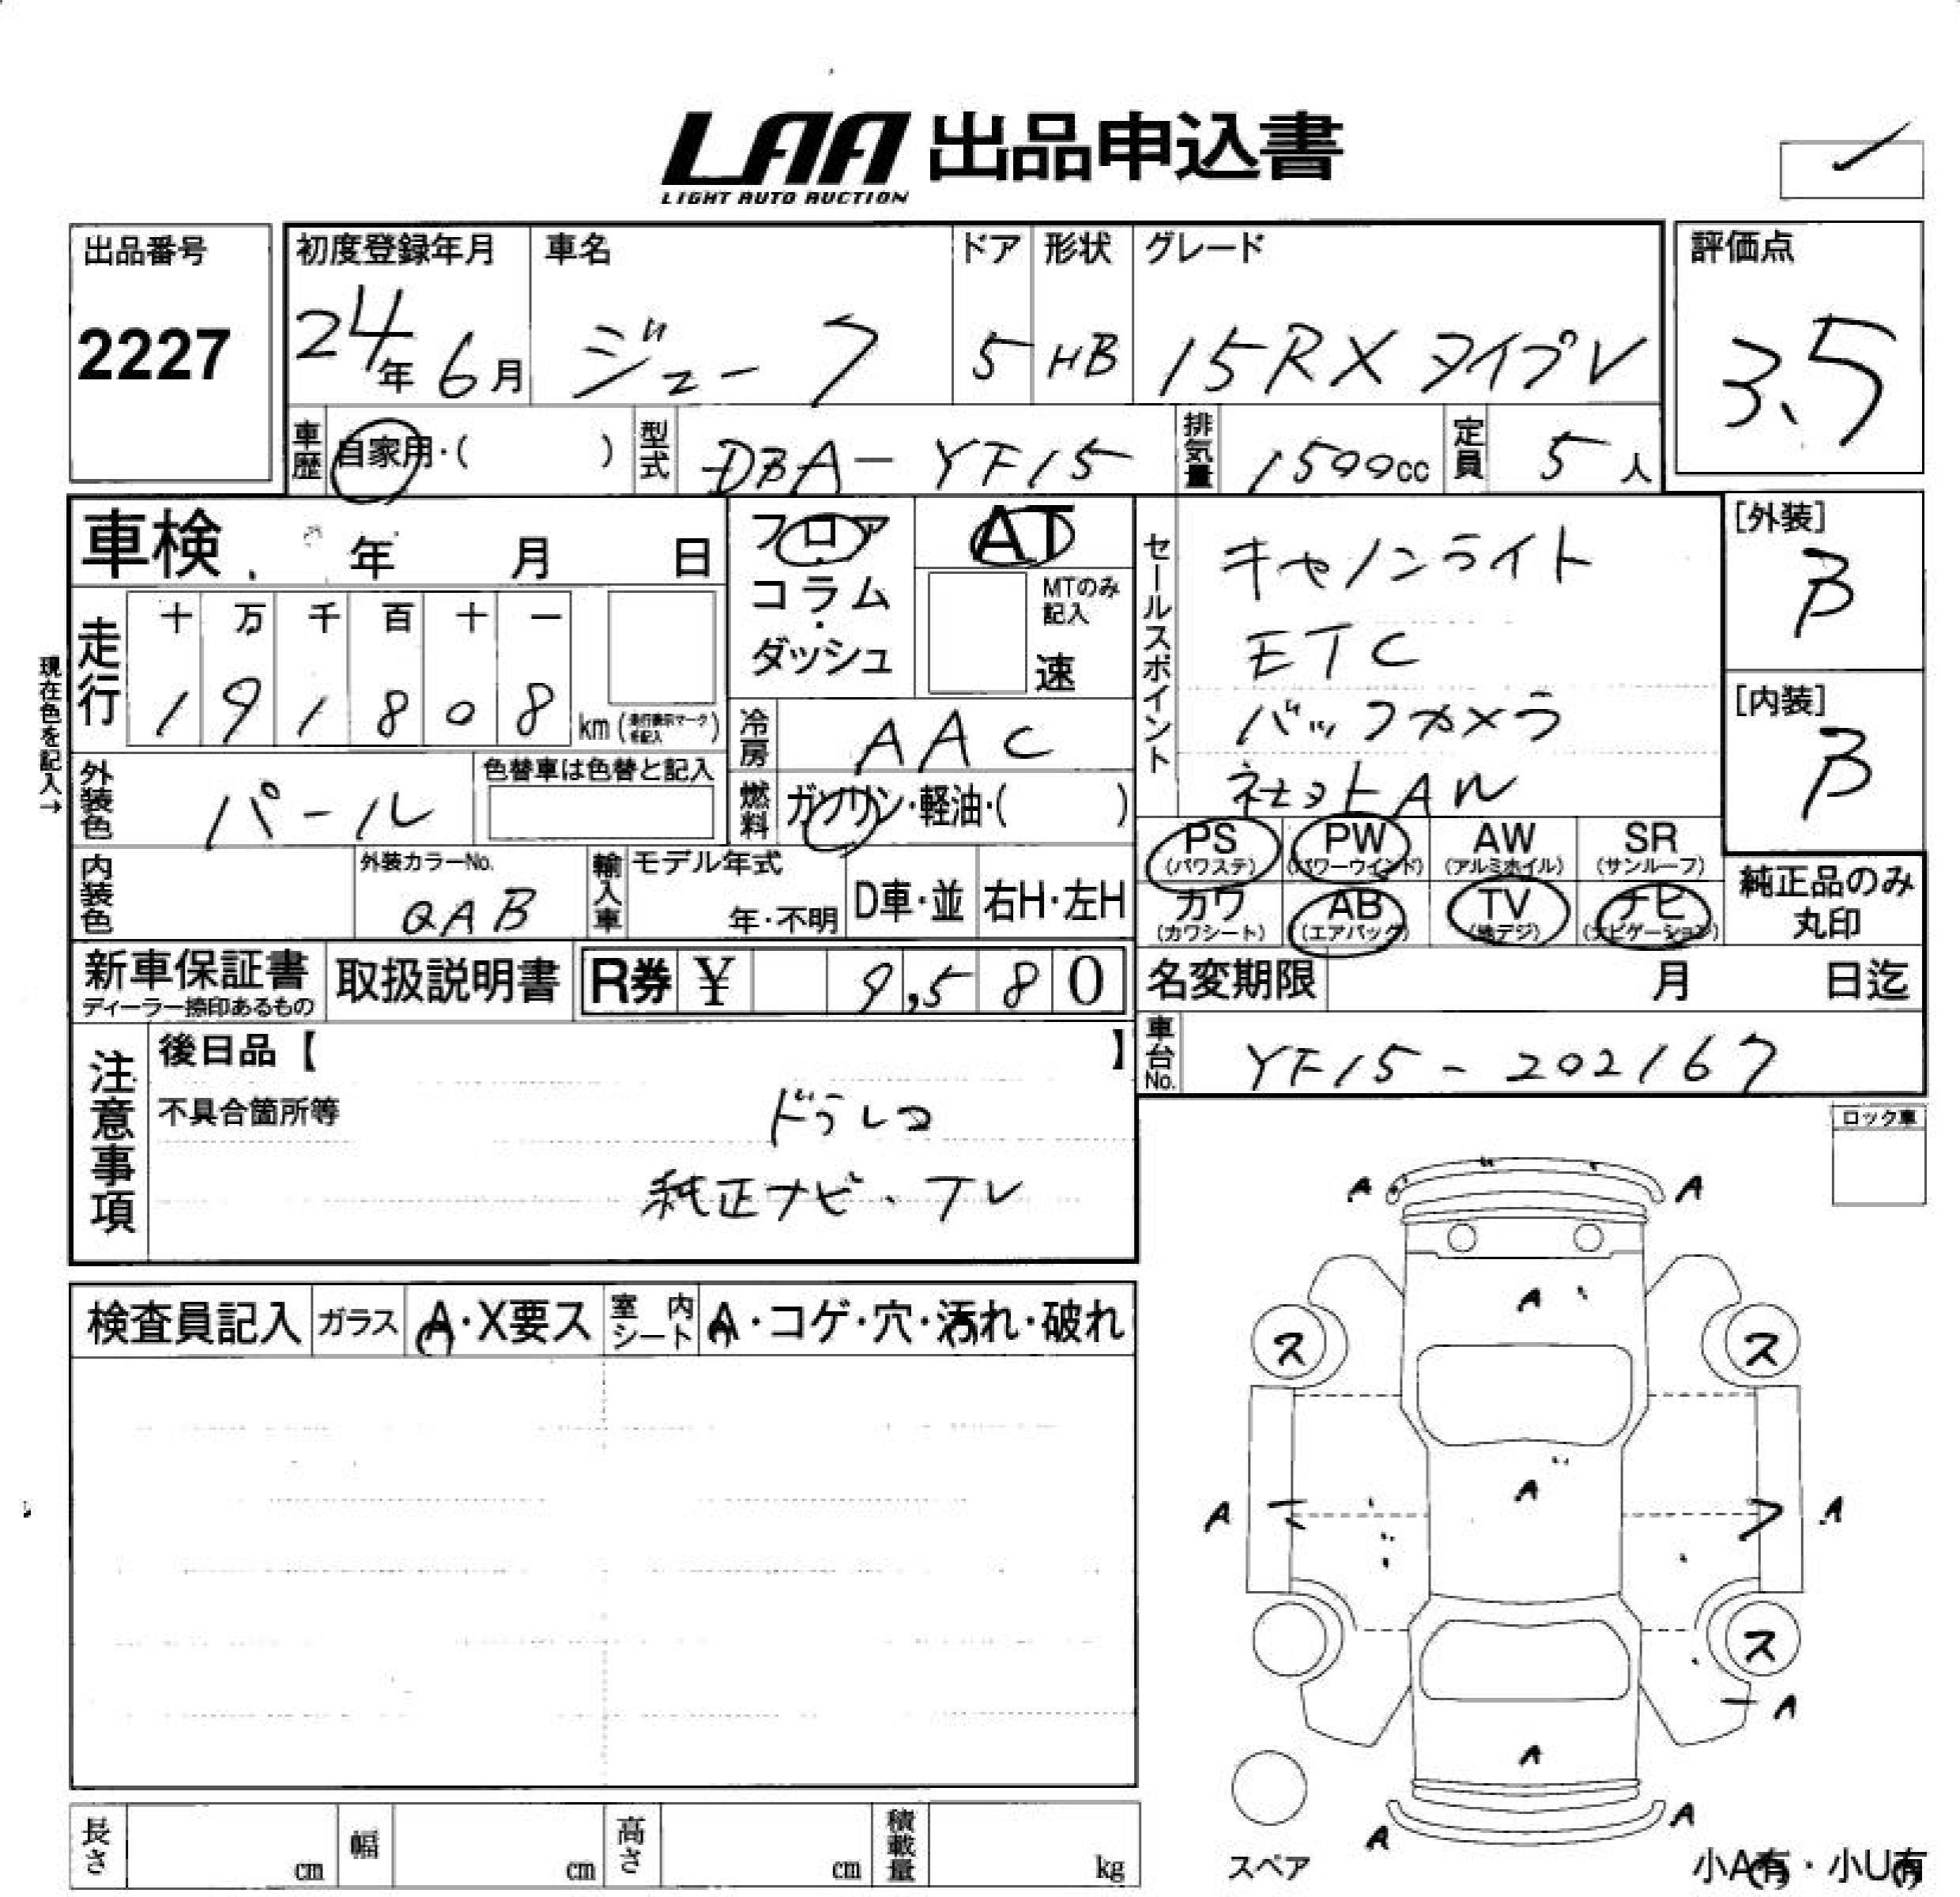 LAA 出品申込書
LIGHT AUTO AUCTION
出品番号
2227
初度登録年月
24年 6月
車名
ジューク
ドア
5
形状
HB
グレード
15RX タイプV
評価点
3.5
車歴
自家用・( )
型式
DBA-YF15
排気量
1500cc
定員
5人
車検 年 月 日
フロア・コラム・ダッシュ
AT
MTのみ記入
速
セールスポイント
キセノンライト
ETC
バックカメラ
社外AW
[外装]
B
[内装]
B
現在色を記入→
走行
十 万 千 百 十 一
1 9 1 8 0 8
km (走行表示マークを記入)
冷房
AAC
外装色
パール
色替車は色替と記入
燃料
ガソリン・軽油・( )
PS (パワステ)
PW (パワーウインド)
AW (アルミホイル)
SR (サンルーフ)
カワ (カワシート)
AB (エアバック)
TV (地デジ)
ナビ (ナビゲーション)
純正品のみ丸印
内装色
外装カラーNo.
QAB
輸入車
モデル年式
年・不明
D車・並
右H・左H
新車保証書
ディーラー捺印あるもの
取扱説明書
R券 ¥ 9,580
名変期限 月 日迄
車台No.
YF15-202167
注意事項
後日品【 】
不具合箇所等
ドラレコ
純正ナビ・TV
ロック車
検査員記入
ガラス
A・X要ス
室内シート
A・コゲ・穴・汚れ・破れ
A A
A
ス ス
A
A A
ス
A
A
A A
スペア
小A有・小U有
長さ cm
幅 cm
高さ cm
積載量 kg